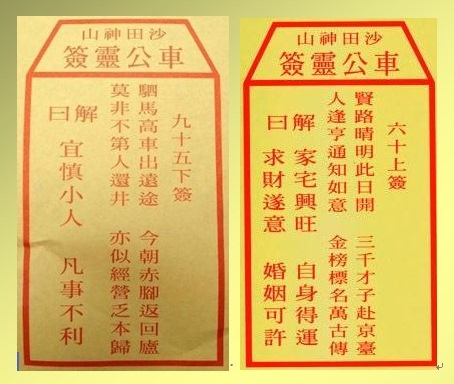 沙田神山
車公靈簽
九十五下簽
駟馬高車出遠途 今朝赤腳返回廬
莫非不第人還井 亦似經營乏本歸
解曰 宜慎小人 凡事不利
沙田神山
車公靈簽
六十上簽
賢路晴明此日開 三千才子赴京臺
人逢亨通知如意 金榜標名萬古傳
解曰
家宅興旺 自身得運
求財遂意 婚姻可許